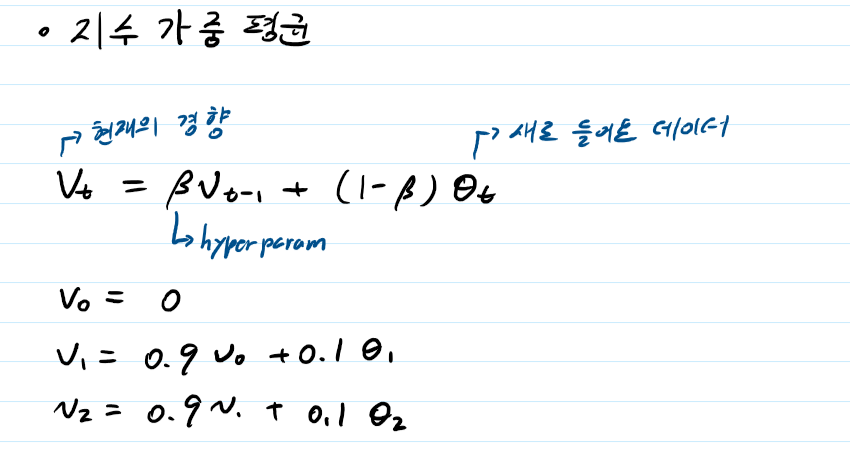 • 지수 가중 평균
↱ 현재의 경향
↱ 새로 들어온 데이터
Vₜ = βVₜ₋₁ + (1-β) θₜ
↳ hyper param
V₀ = 0
V₁ = 0.9 V₀ + 0.1 θ₁
V₂ = 0.9 V₁ + 0.1 θ₂